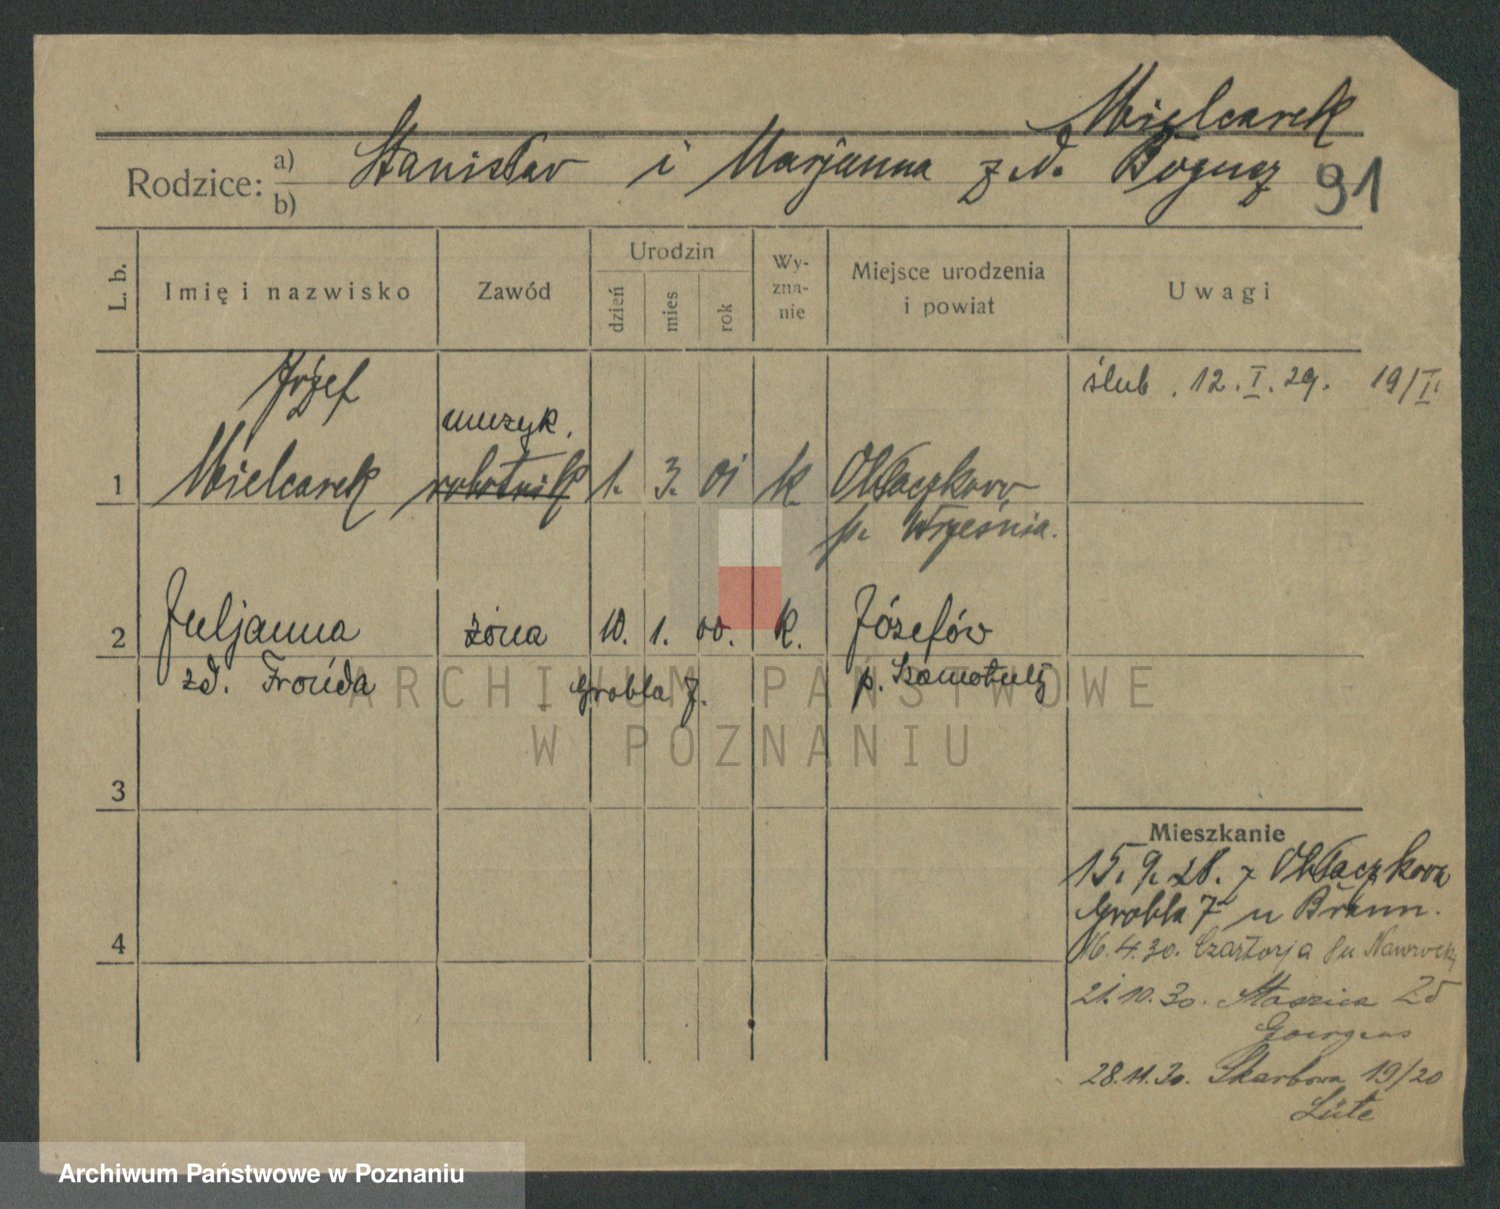 Mielcarek
Rodzice: a) Stanisław i Marjanna z d. Bogusz 91
b)
L. b. Imię i nazwisko Zawód Urodzin dzień mies rok Wy-zna-nie Miejsce urodzenia i powiat Uwagi
Józef ślub . 12. I. 29. 19/I.
muzyk.
1 Mielcarek robotnik 1. 3. 01 k Obłaczkowo
p. Września.
2 Juljanna żona 10. 1. 00. k. Józefów
zd. Frońda Grobla 7. p. Szamotuły
3
Mieszkanie
15. 9. 28. z Obłaczkowa
Grobla 7 u Braun.
4
16.4.30. Czartorja u Nawrocki
21.10.30. Staszica
28.11.30. Skarbowa 19/20
Lüte
ARCHIWUM PAŃSTWOWE
W POZNANIU
Archiwum Państwowe w Poznaniu